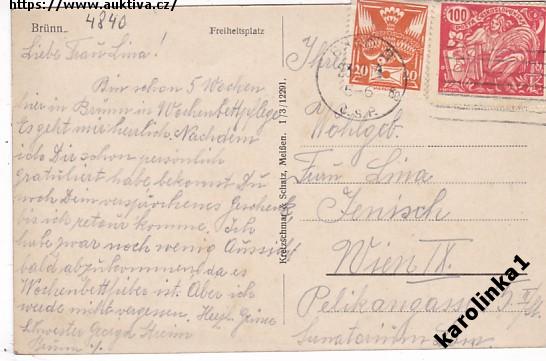 https://www.auktiva.cz/
4840
Brünn.
Freiheitsplatz
Liebe Frau Lina!
Bin schon 5 Wochen
hier in Brünn in Wochenbettpflege
Es geht mir herrlich. Nachdem
ich Dir schon persönlich
gratuliert habe, bekommst Du
noch Dein versprochenes Geschenk
bis ich retour komme. Ich
habe zwar noch wenig Aussicht
bald abzukommen da es
Wochenbettfieber ist. Aber ich
werde nicht vergessen. Herzl. Grüsse
Schwester
Brünn
Kretzschmar & Schatz, Meißen. 1/3/12291.
20 20
100
Č.S.P.
Wohlgeb.
Frau Lina
Jenisch
Wien IX.
Pelikangasse
Sanatorium
karolinka1